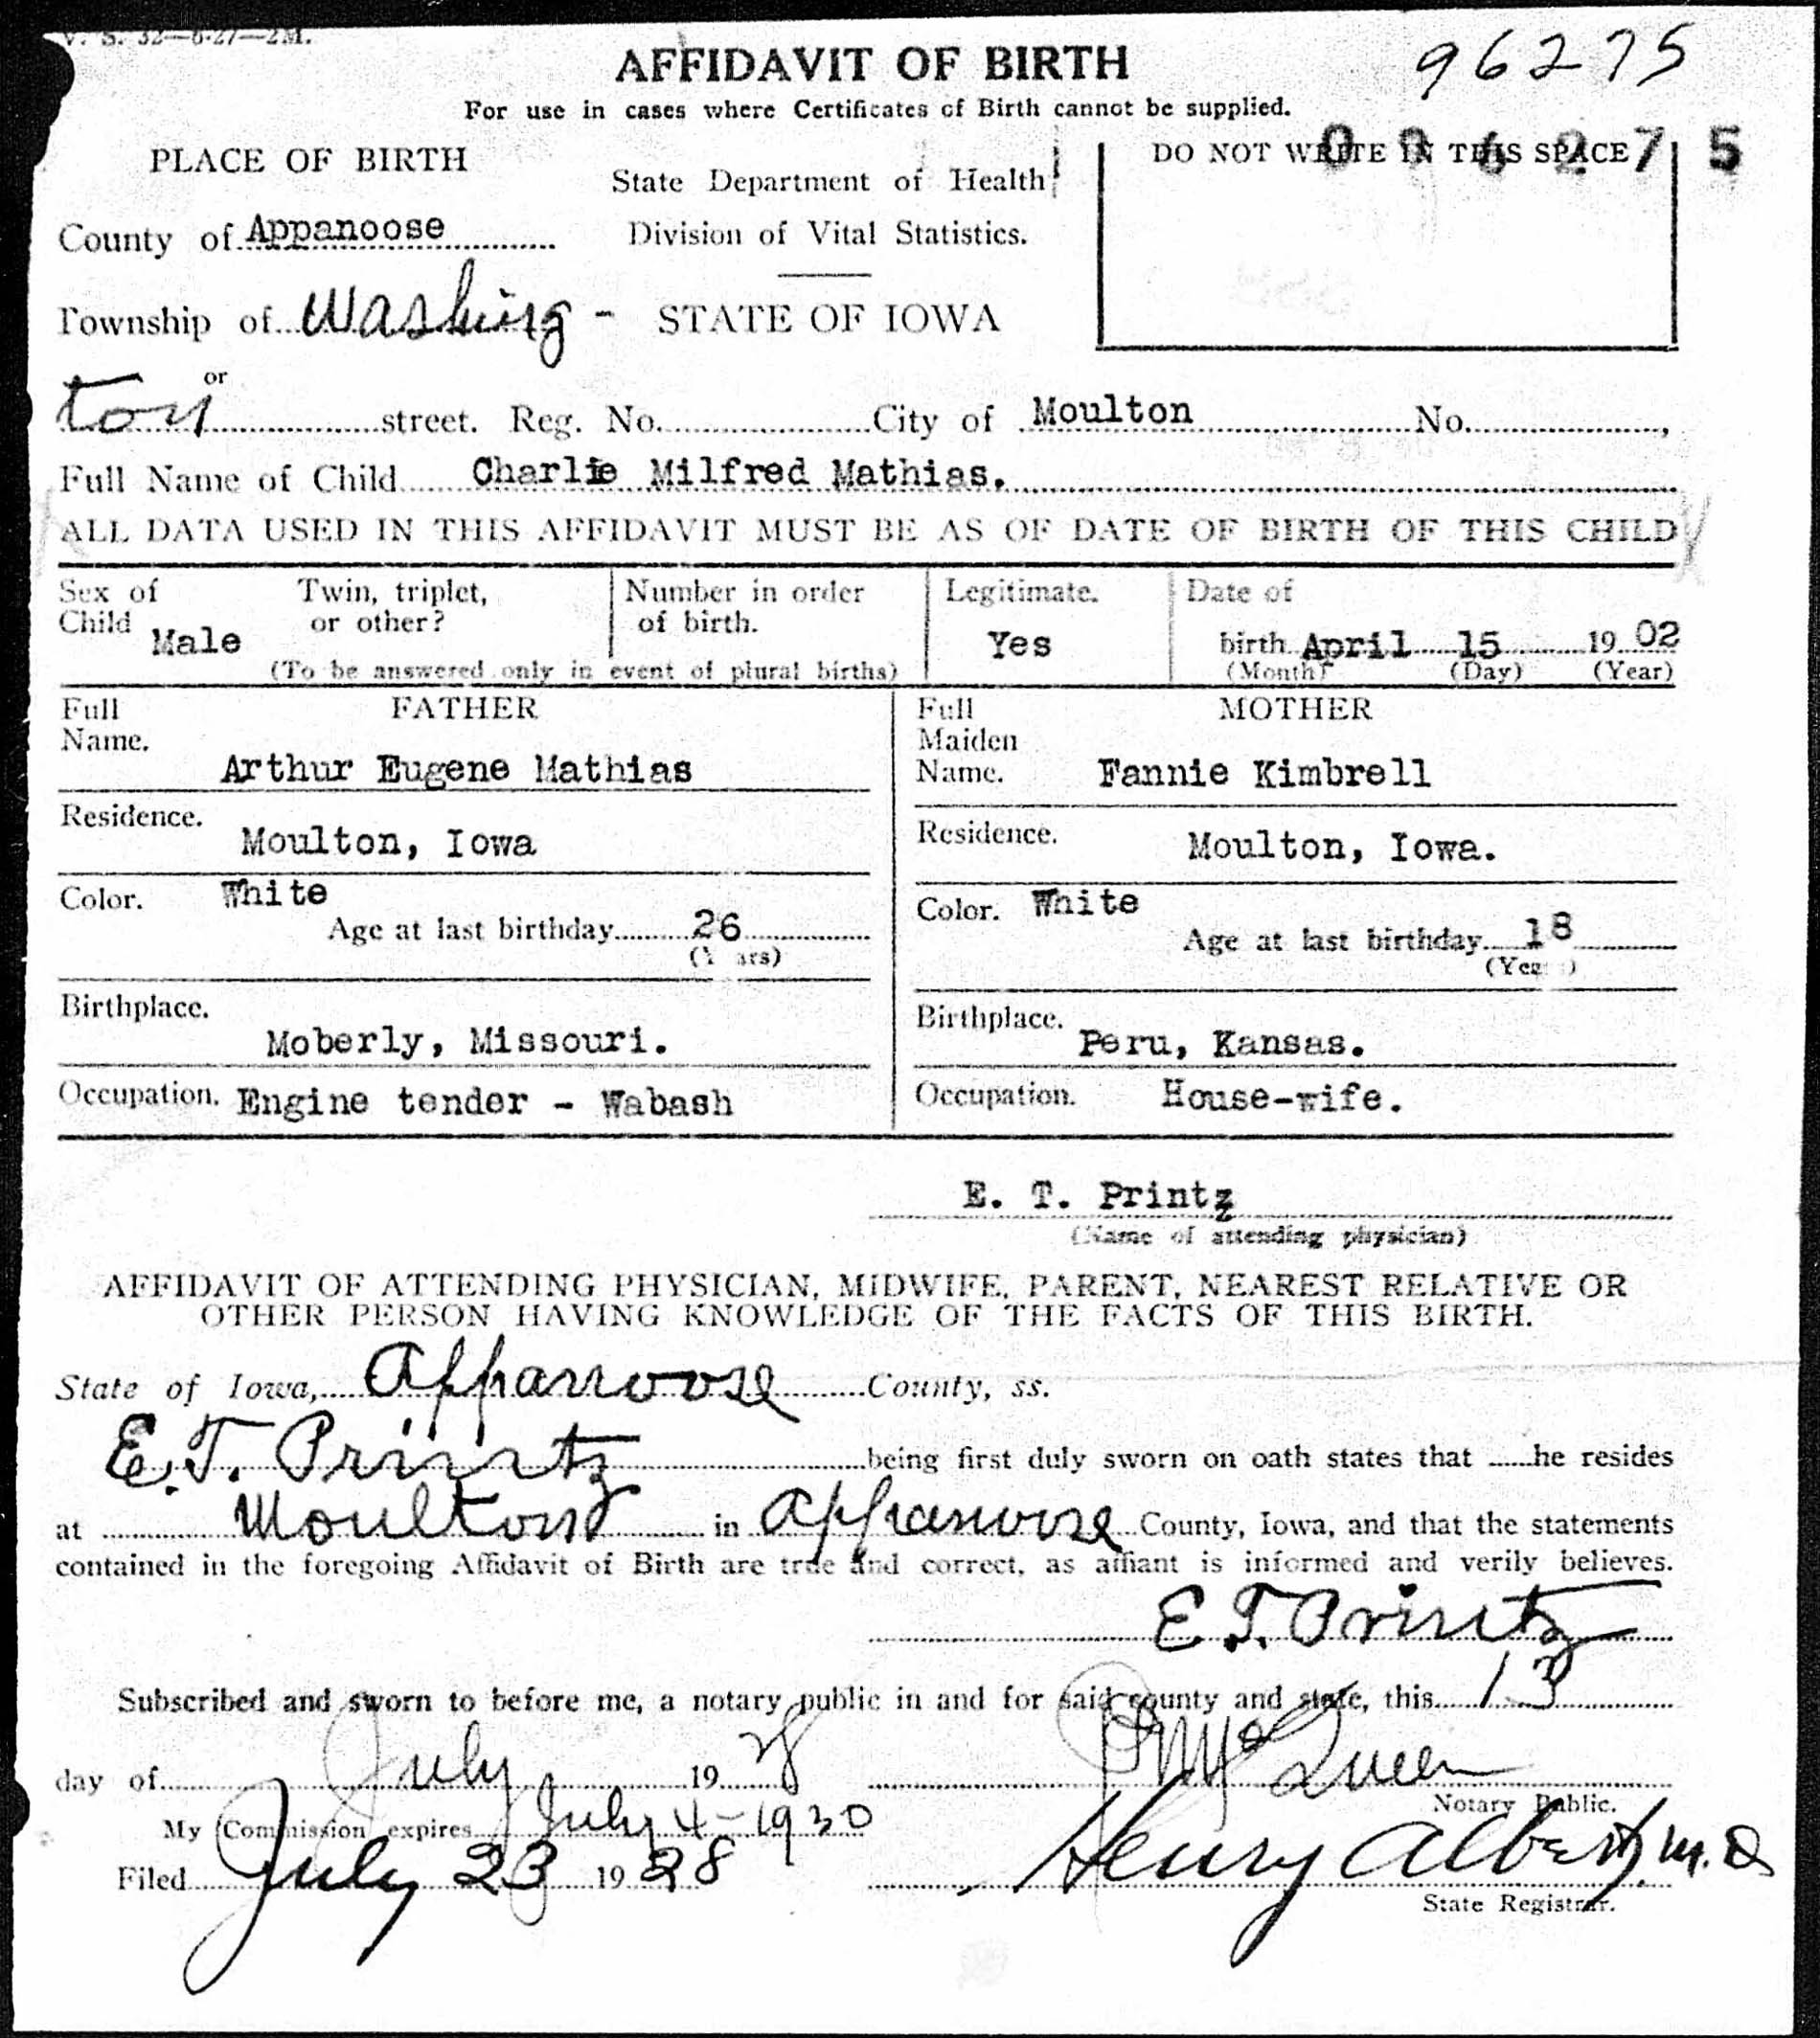 V. S. 32—6-27—2M.
AFFIDAVIT OF BIRTH
96275
For use in cases where Certificates of Birth cannot be supplied.
PLACE OF BIRTH
State Department of Health
DO NOT WRITE IN THIS SPACE
096275
County of Appanoose
Division of Vital Statistics.
Township of Washing- STATE OF IOWA
or
ton street. Reg. No. City of Moulton No. ,
Full Name of Child Charlie Milfred Mathias.
ALL DATA USED IN THIS AFFIDAVIT MUST BE AS OF DATE OF BIRTH OF THIS CHILD
Sex of Child Male
Twin, triplet, or other?
Number in order of birth.
(To be answered only in event of plural births)
Legitimate. Yes
Date of birth April 15 1902
(Month) (Day) (Year)
FATHER
Full Name. Arthur Eugene Mathias
Residence. Moulton, Iowa
Color. White
Age at last birthday 26
(Years)
Birthplace. Moberly, Missouri.
Occupation. Engine tender - Wabash
MOTHER
Full Maiden Name. Fannie Kimbrell
Residence. Moulton, Iowa.
Color. White
Age at last birthday 18
(Years)
Birthplace. Peru, Kansas.
Occupation. House-wife.
E. T. Printz
(Name of attending physician)
AFFIDAVIT OF ATTENDING PHYSICIAN, MIDWIFE, PARENT, NEAREST RELATIVE OR
OTHER PERSON HAVING KNOWLEDGE OF THE FACTS OF THIS BIRTH.
State of Iowa, Appanoose County, ss.
E. T. Printz being first duly sworn on oath states that he resides
at Moulton in Appanoose County, Iowa, and that the statements
contained in the foregoing Affidavit of Birth are true and correct, as affiant is informed and verily believes.
E. T. Printz
Subscribed and sworn to before me, a notary public in and for said county and state, this 13
day of July 1928
McQueen
Notary Public.
My Commission expires July 4-1930
Filed July 23 1928
Henry Albert, M.D.
State Registrar.